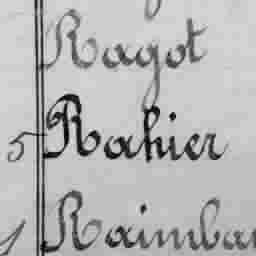 Ragot
5 Rahier
Raimbau